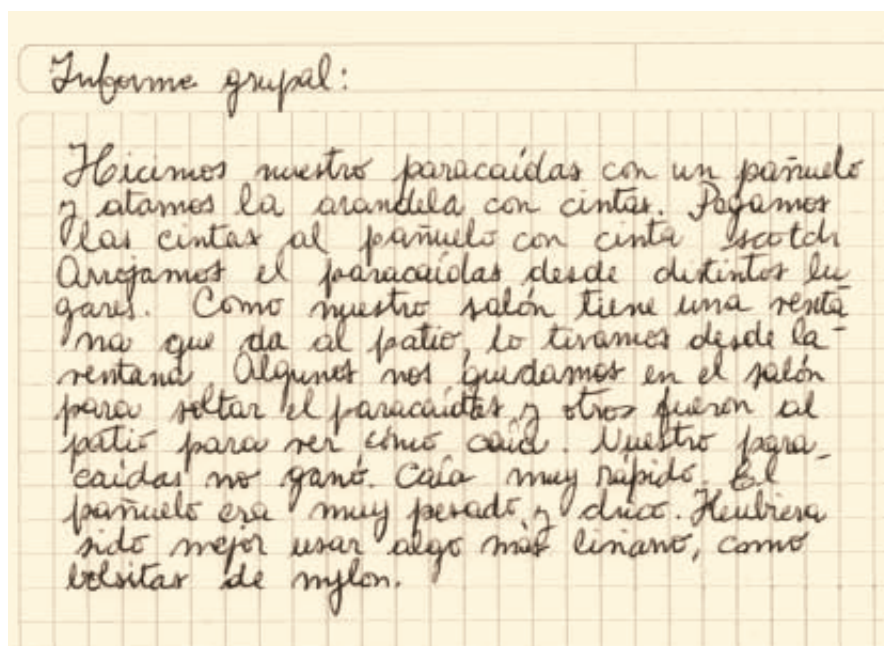 Informe grupal:
Hicimos nuestro paracaídas con un pañuelo
y atamos la arandela con cintas. Pegamos
las cintas al pañuelo con cinta scotch
Arrojamos el paracaídas desde distintos lu-
gares. Como nuestro salón tiene una venta-
na que da al patio, lo tiramos desde la
ventana Algunos nos quedamos en el salón
para soltar el paracaídas y otros fueron al
patio para ver cómo caía. Nuestro para-
caídas no ganó. Caía muy rápido. El
pañuelo era muy pesado y chico. Hubiera
sido mejor usar algo más liviano, como
bolsitas de nylon.